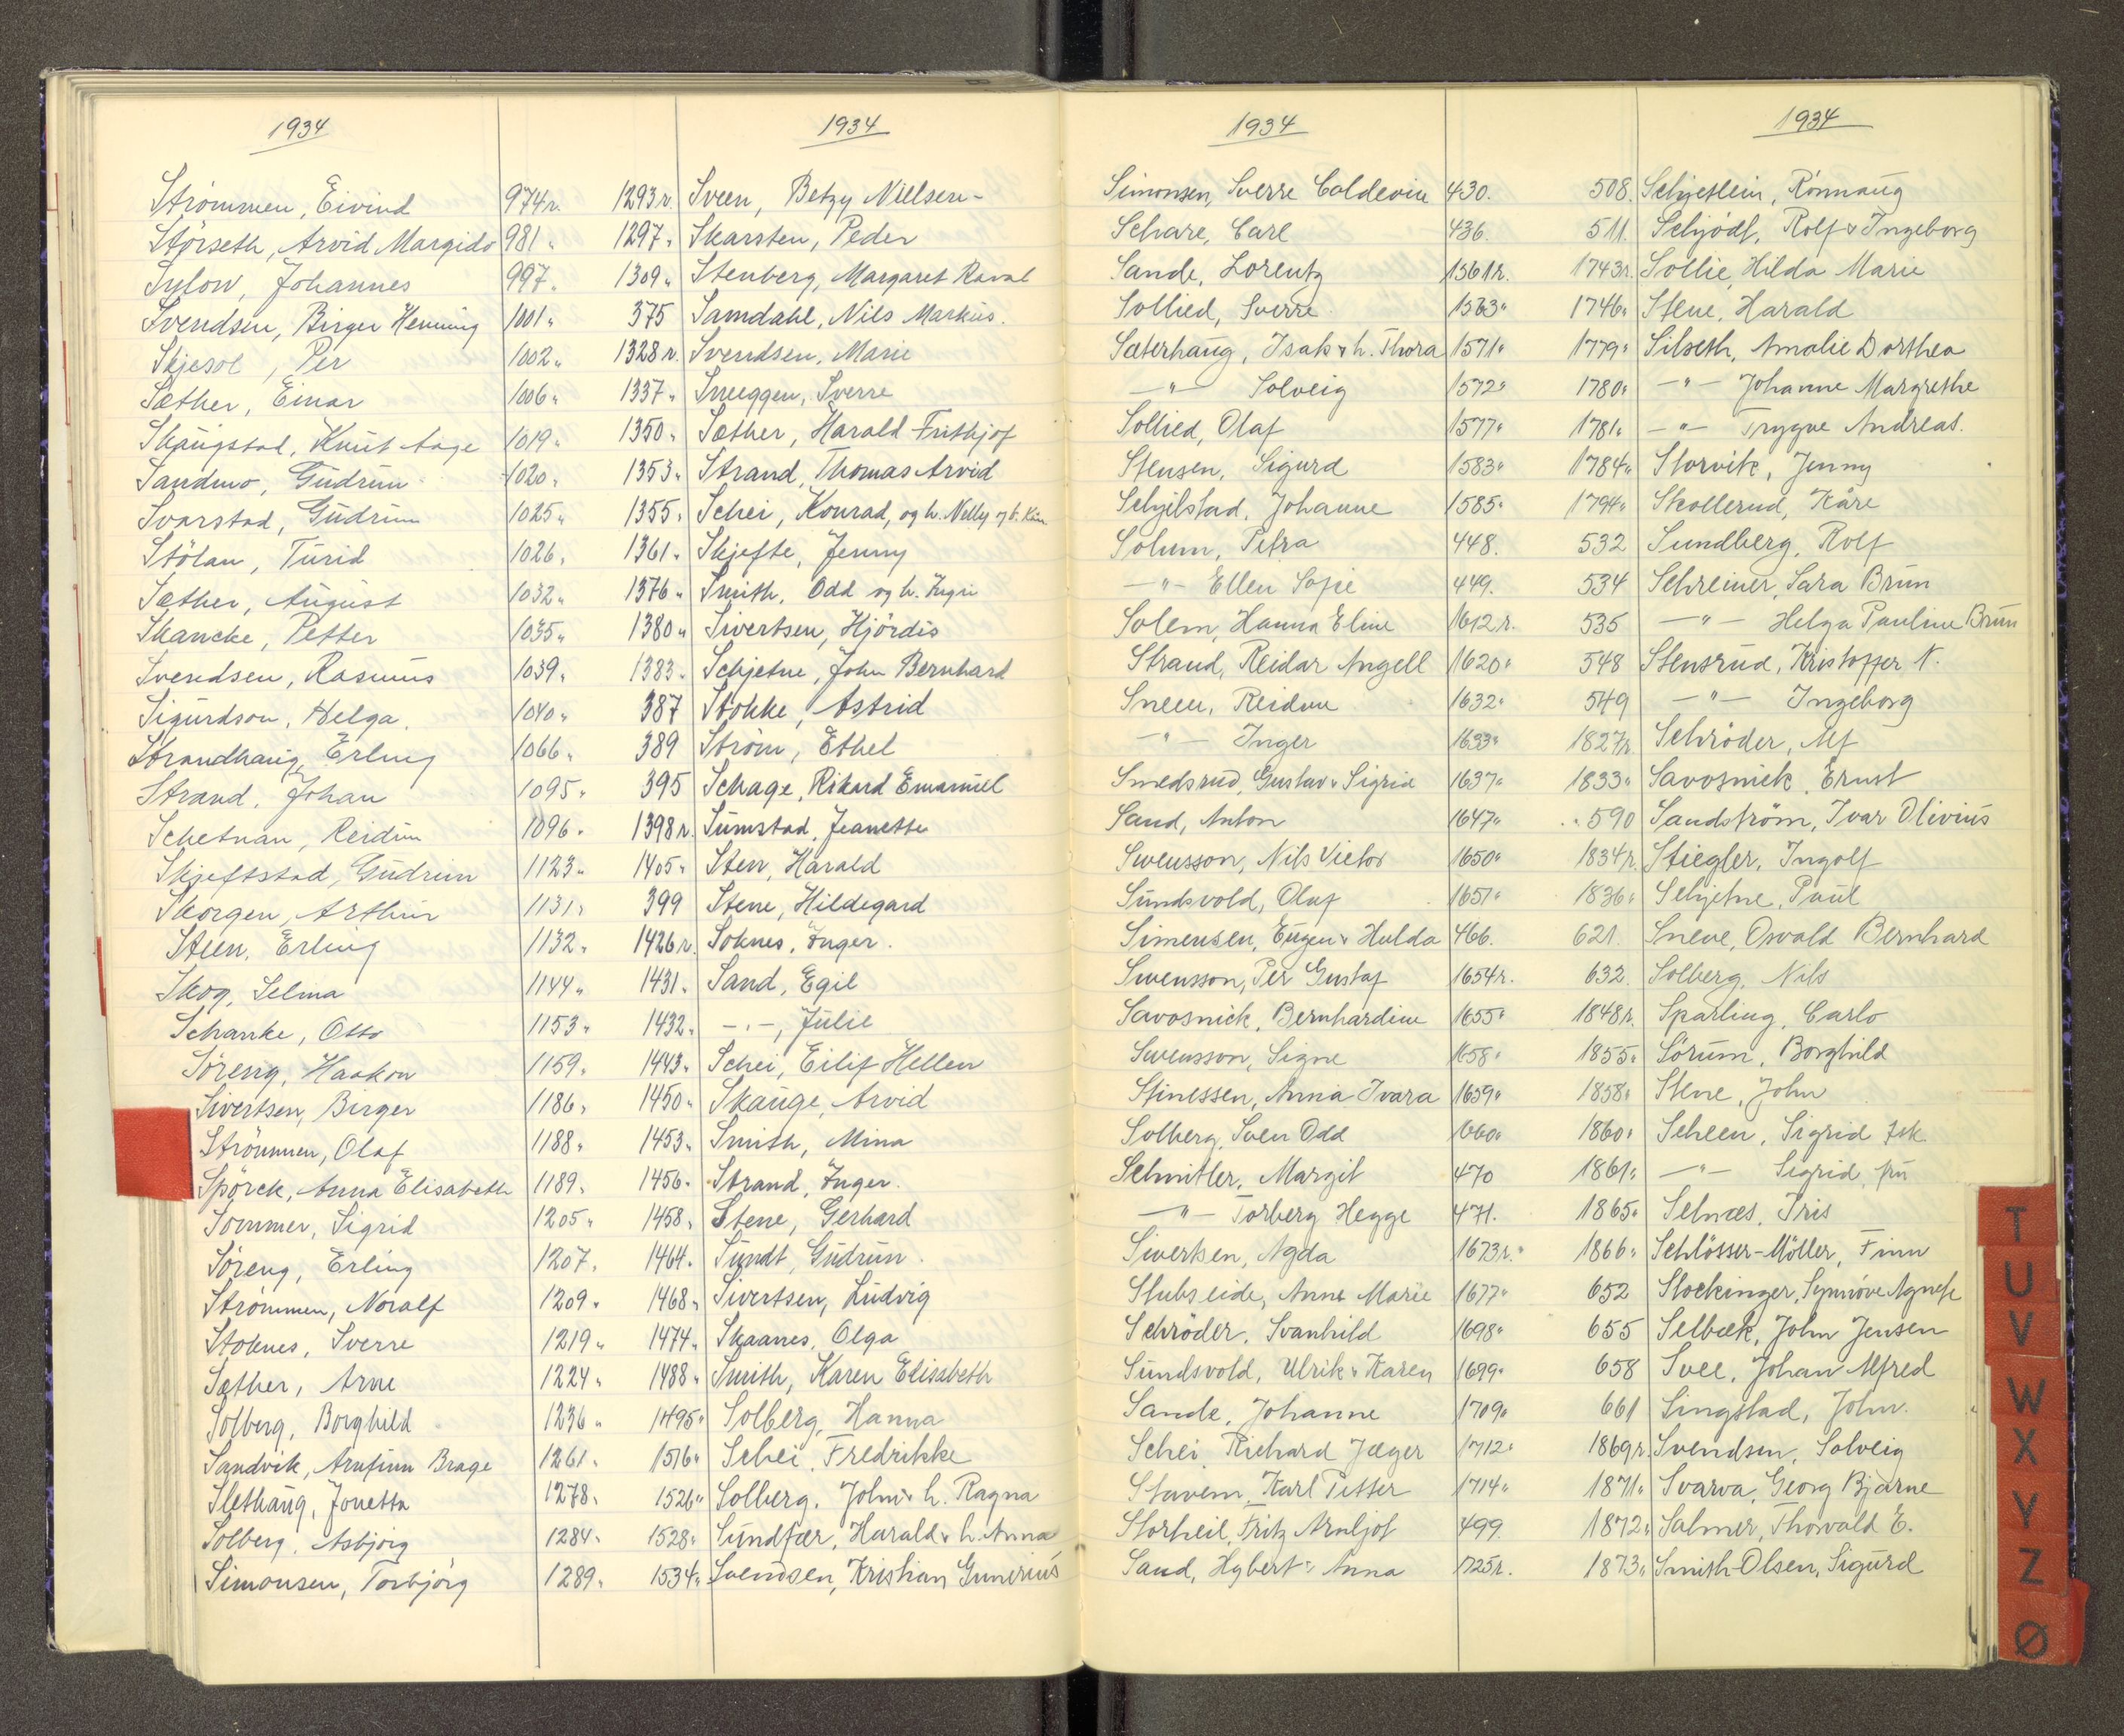 1934
Strömmen, Eivind 974 r.
Störseth, Arvid Margido 981 "
Sylow, Johannes 997 "
Svendsen, Birger Henning 1001 "
Skjesol, Per 1002 "
Sæther, Einar 1006 "
Skaugstad, Knut Aage 1019 "
Sandmo, Gudrun 1020 "
Svarstad, Gudrun 1025 "
Stölan, Turid 1026 "
Sæther, August 1032 "
Skancke, Petter 1035 "
Svendsen, Rasmus 1039 "
Sigurdson, Helga. 1040 "
Strandhaug, Erling 1066 "
Strand, Johan 1095 "
Schetnan, Reidun 1096 "
Skjeftstad, Gudrun 1123 "
Skorgen, Arthur 1131 "
Steen, Erling 1132 "
Skog, Selma 1144 "
Schanke, Otto 1153 "
Söreng, Haakon 1159 "
Sivertsen, Birger 1186 "
Strömmen, Olaf 1188 "
Spörck, Anna Elisabeth 1189 "
Sommer, Sigrid 1205 "
Söreng, Erling 1207 "
Strömmen, Noralf 1209 "
Stoknes, Sverre 1219 "
Sæther, Arne 1224 "
Solberg, Borghild 1236 "
Sandvik, Arnfinn Brage 1261 "
Slethaug, Jonetta 1278 "
Solberg, Asbjörg 1284 "
Simonsen, Torbjörg 1289 "
1934
1293 r. Sveen, Betzy Nielsen-
1297 " Skarsten, Peder
1309 " Stenberg, Margaret
375 Samdahl, Nils Markus.
1328 r. Svendsen, Marie
1337 " Sneeggen, Sverre
1350 " Sæther, Harald Frithjof
1353 " Strand, Thomas Arvid
1355 " Schei, Konrad, og h. Nelly og b.
1361 " Skjefte, Jenny
1376 " Smith, Odd og h. Ingri
1380 " Sivertsen, Hjördis
1383 " Schjetne, John Bernhard
387 Stokke, Astrid
389 Ström, Ethel
395 Schage, Rikard Emanuel
1398 r. Sumstad, Jeanette
1405 " Sten, Harald
399 Stene, Hildegard
1426 r. Soknes, Inger.
1431 " Sand, Egil
1432 " - " -, Julie
1443 " Schei, Eilif Hellen
1450 " Skauge, Arvid
1453 " Smith, Mina
1456 " Strand, Inger.
1458 " Stene, Gerhard
1464 " Sundt, Gudrun.
1468 " Sivertsen, Ludvig
1474 " Skaanes, Olga
1488 " Smith, Karen Elisabeth
1495 " Solberg, Hanna
1516 " Schei, Fredrikke
1526 " Solberg, John & h. Ragna
1528 " Sundfær, Harald & h. Anna
1534 " Svendsen, Kristian Gunerius
1934
Simonsen, Sverre Coldevin 430.
Schare, Carl 436.
Sande, Lorentz 1561 r.
Sollied, Sverre 1563 "
Sæterhaug, Isak & h. Thora 1571 "
- " - Solveig 1572 "
Sollied, Olaf 1577 "
Stensen, Sigurd 1583 "
Schjelstad, Johanne 1585 "
Solum, Petra 448.
- " - Ellen Sofie 449.
Solem, Hanna Eline 1612 r.
Strand, Reidar Angell 1620 "
Sneen, Reidun 1632 "
- " - Inger 1633 "
Smedsrud, Gustav & Sigrid 1637 "
Sand, Anton 1647 "
Swensson, Nils Victor 1650 "
Sundsvold, Olaf 1651 "
Simensen, Eugen & Hulda 466.
Swensson, Per Gustaf 1654 r.
Savosnick, Bernhardine 1655 "
Swensson, Signe 1658 "
Stinessen, Anna Ivara 1659 "
Solberg, Sven Odd 1660 "
Schmitler, Margit 470
- " - Torberg Hegge 471.
Sivertsen, Agda 1673 r. "
Stubseide, Anne Marie 1677 "
Schröder, Svanhild 1698 "
Sundsvold, Ulrik & Karen 1699 "
Sande, Johanne 1709 "
Schei, Richard Jæger 1712 "
Stavem, Karl Petter 1714 "
Storheil, Fritz Arnljot 499.
Sand, Hgbert & Anna 1725 r.
1934
508. Schjetlein, Rönnaug
511. Schjödt, Rolf & Ingeborg
1743 r. Sollie, Hilda Marie
1746 " Stene, Harald
1779 " Silseth, Amalie Dorthea
1780 " - " - Johanne Margrethe
1781 " - " - Trygve Andreas.
1784 " Storvik, Jenny
1794 " Skollerud, Kåre
532 Sundberg, Rolf
534 Schreiner, Sara Brun
535 - " - Helga Pauline Brun
548 Stensrud, Kristoffer N.
549 - " - Ingeborg
1827 r. Schröder, Alf
1833 " Savosnick, Ernst
590 Sandström, Ivar Olivius
1834 r. Stiegler, Ingolf
1836 " Schjetne, Paul
621. Sneve, Osvald Bernhard
632. Solberg, Nils
1848 r. Sparling, Carlo
1855 " Sörum, Borghild
1858 " Stene, John
1860 " Scheen, Sigrid frk.
1861 " - " - Sigrid, fru
1865 " Selnæs, Iris
1866 " Schlösser-Möller, Finn
652 Stockinger, Synnöve Agnete
655 Selbæk, John Jensen
658 Svee, Johan Alfred
661 Singstad, John.
1869 r. Svendsen, Solveig
1871 " Svarva, Georg Bjarne
1872 " Salmer, Thorvald E.
1873 " Smith-Olsen, Sigurd
T
U
V
W
X
Y
Z
Ø